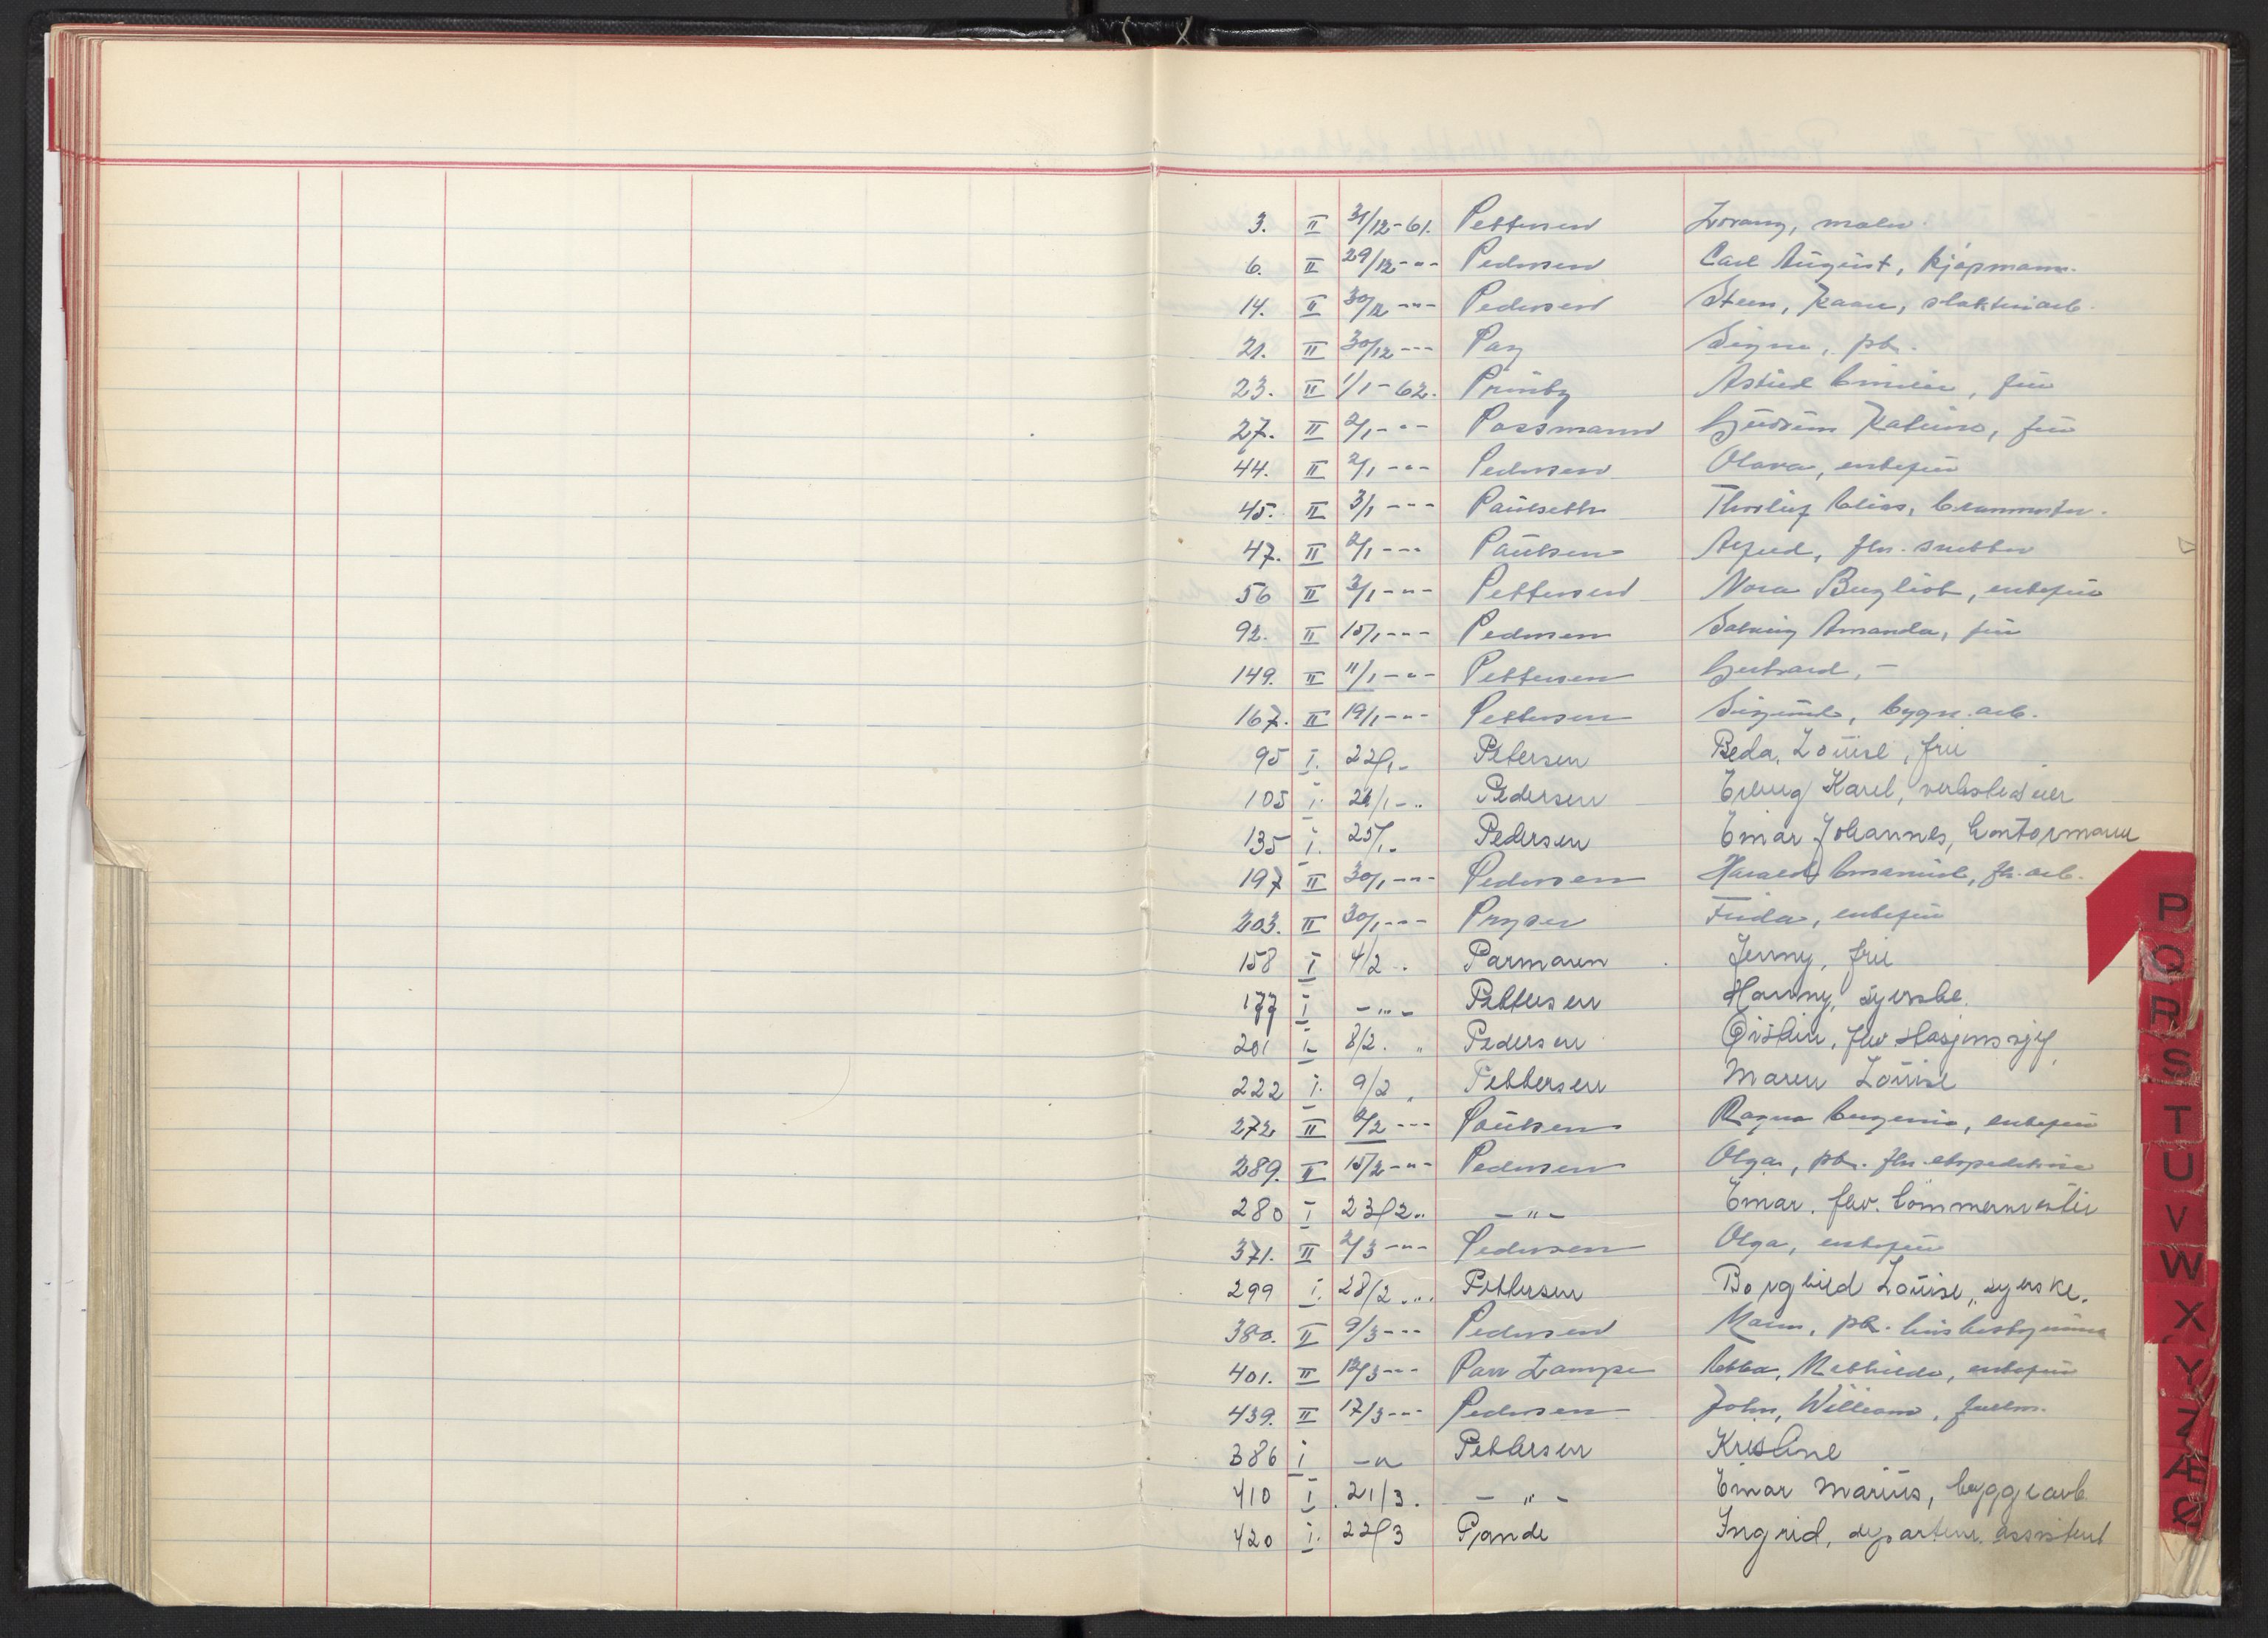 3. II 31/12-61. Pettersen maler.
6. II 29/12-"- Pedersen Carl August, kjøpmann.
14. II 30/12-"- Pedersen Steen, Kaare, slakteriarb.
21. II 30/12-"- Pay Signe, pb.
23. II 1/1-62. Prinby Astrid fru
27. II 2/1-"- Possmann Gudrun Katrine, fru
44. II 2/1-"- Pedersen Olava, enkefru
45. II 3/1-"- Paulseth Thorleif Elias,
47. II 2/1-"- Paulsen Alfred, fhv. snekker
56 II 3/1-"- Pettersen Nora Bergliot, enkefru
92. II 15/1-"- Pedersen Solveig Amanda, fru
149. II 11/1-"- Pettersen Gerhard, -
167. II 19/1-"- Pettersen Sigurd, bygn.arb.
95 I. 22/1- Petersen Beda, Louise, fru
105 I. 24/1-" Pedersen Erling Karel,
135 I. 25/1- Pedersen Einar Johannes, kontormann
197 II 30/1-"- Pedersen Harald Emanuel, fh. arb.
203. II 30/1-"- Pryser Frida, enkefru
158 I 4/2 " Parmann Jenny, fru
177 I -"- Pettersen Hanny, syerske.
201 I 8/2. " Pedersen Øistein, fhv. stasjonssjef
222 I. 9/2 " Pettersen Maren Louise
272 II 9/2-"- Paulsen Ragna Eugenie, enkefru
289. II 15/2-"- Pedersen Olga, pb. fhv. ekspeditrise
280 I 23/2" -"- Einar. fhv. tømmermester
371. II 2/3-"- Pedersen Olga, enkefru
299 I. 28/2-". Pettersen Borghild Louise, syerske.
380. II 9/3-"- Pedersen Maren, pb. husbestyrerinne
401. II 12/3-"- Parr Lampe Ebba, Mathilde, enkefru
439. II 17/3-"- Pedersen John, William, fullm.
386 I -" Pettersen Kristine
410 I 21/3. -"- Einar Marius, byggearb.
420 I. 22/3 Pande Ingrid, departem. assistent
P
Q
R
S
T
U
V
W
X
Y
Z
Æ
Ø